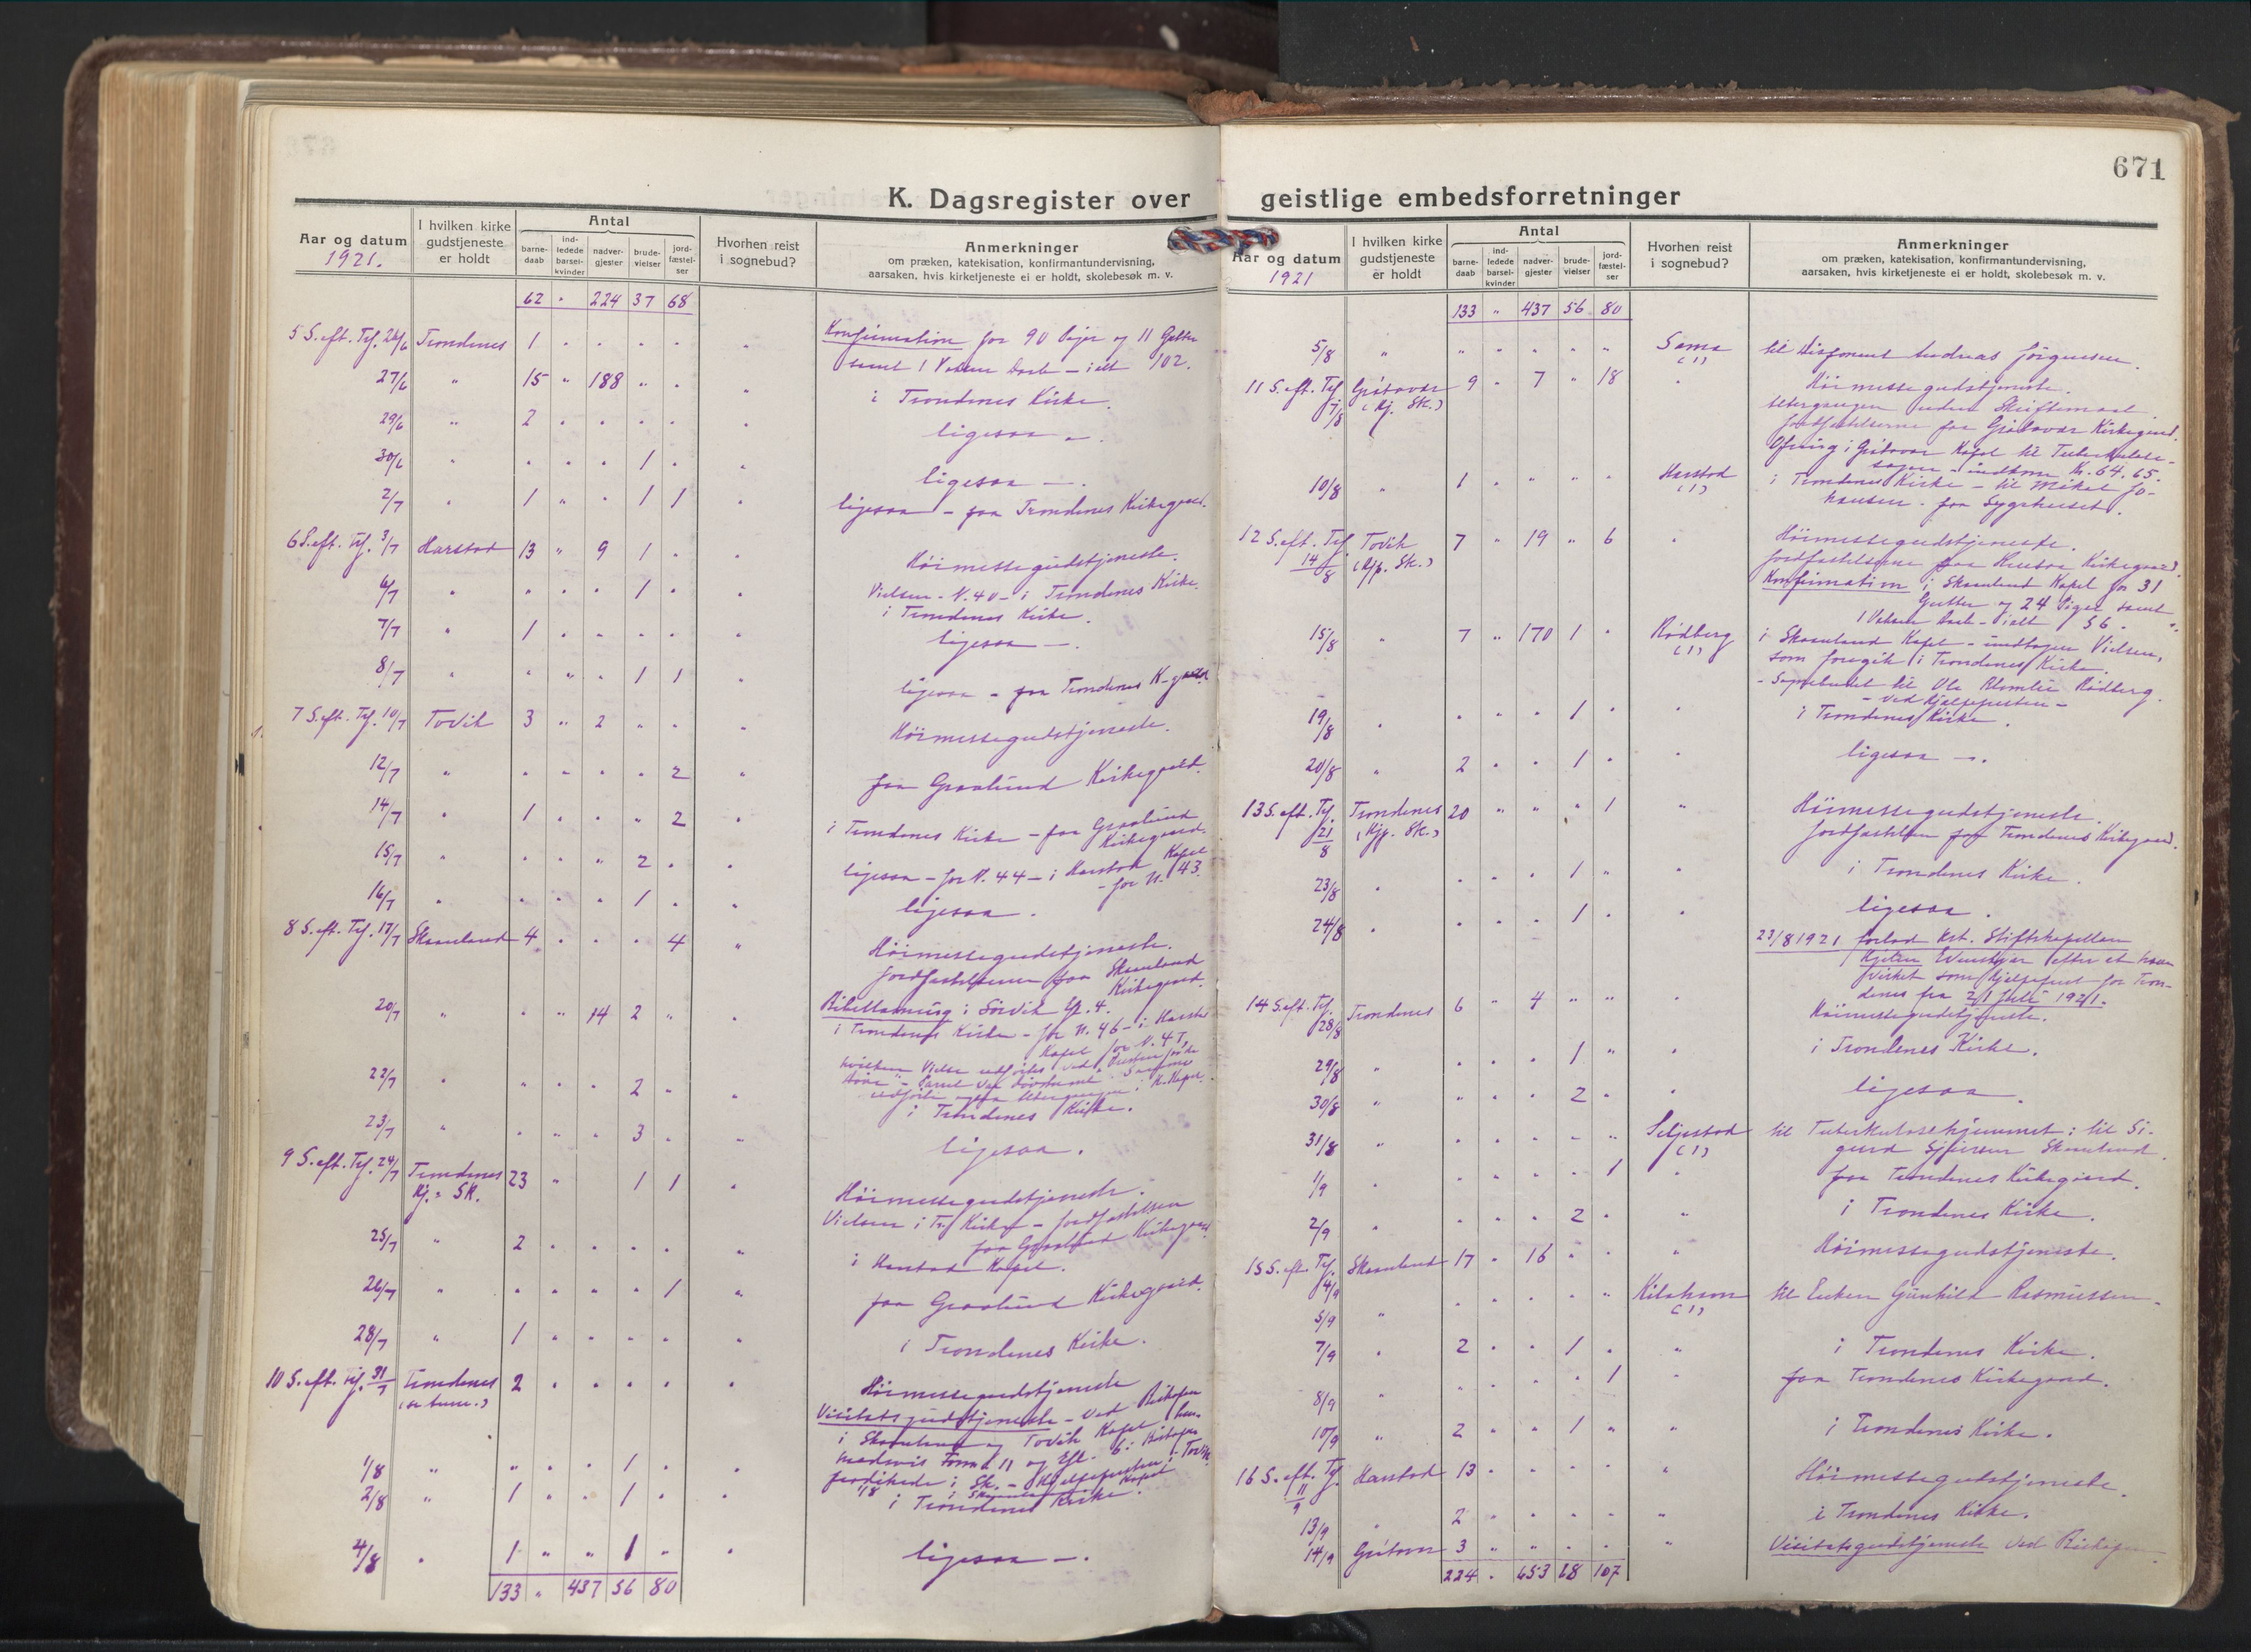 671
K. Dagsregister over
Aar og datum
1921.
I hvilken kirke
gudstjeneste
er holdt
Antal
barne-
daab
ind-
ledede
barsel-
kvinder
nadver-
gjester
brude-
vielser
jord-
fæstel-
ser
Hvorhen reist
i sognebud?
Anmerkninger
om præken, katekisation, konfirmantundervisning,
aarsaken, hvis kirketjeneste ei er holdt, skolebesøk m. v.
62 " 224 37 68
5 S. eft. Trf. 26/6 Trondenes 1 Konfirmation for 90 Piger og 11 Gutter
samt 1 Voksen Daab – ialt 102.
27/6 " 15 " 188 " i Trondenes Kirke.
29/6 " 2 ligesaa
30/6 " 1 ligesaa –.
2/7 1 " 1 1 ligesaa – paa Trondenes Kirkegaard.
6 S. eft. Trf. 3/7 Harstad 13 " 9 1 Höimessegudstjeneste.
6/7 1 Vielsen – N. 40 – i Trondenes Kirke.
7/7 1 i Trondenes Kirke.
ligesaa –.
8/7 1 1 ligesaa – paa Trondenes K-gaard
7 S. eft. Trf. 10/7 Tovik 3 " 2 Höimessegudstjeneste.
12/7 " 2 paa Graalund Kirkegaard.
14/7 1 2 i Trondenes Kirke – paa Graalund
Kirkegaard.
15/7 " 2 ligesaa – for N. 44 – i Harstad Kapel
– for N. 43.
16/7 1 ligesaa.
8 S. eft. Trf. 17/7 Skaanland 4 4 Höimessegudstjeneste.
Jordfæstelserne paa Skaanland
Kirkegaard.
20/7 " 14 2 Bibellæsning i Sörvik Ef. 4.
i Trondenes Kirke – for N. 46 – i Harstad
Kapel for N. 47,
22/7 2
i Trondenes Kirke.
23/7 3 ligesaa.
9 S. eft. Trf. 24/7 Trondenes 23 " 1 1 Höimessegudstjeneste.
Kj. = SK. Vielsen i Tr. Kirke – Jordfæstelsen
paa Graalund Kirkegaard
25/7 " 2 i Harstad Kapel.
26/7 " 1 paa Graalund Kirkegaard.
28/7 " 1 i Trondenes Kirke.
10 S. eft. Trf. 31/7 Trondenes 2 Höimessegudstjeneste
Visitatsgudstjeneste – ved Biskopen
i Skaanland og Tovik Kapel
1/8 " 1
2/8 " 1 1 i Trondenes Kirke.
4/8 1 " " 1 " ligesaa –.
133 " 437 56 80
geistlige embedsforretninger
Aar og datum
1921
I hvilken kirke
gudstjeneste
er holdt
Antal
barne-
daab
ind-
ledede
barsel-
kvinder
nadver-
gjester
brude-
vielser
jord-
fæstel-
ser
Hvorhen reist
i sognebud?
Anmerkninger
om præken, katekisation, konfirmantundervisning,
aarsaken, hvis kirketjeneste ei er holdt, skolebesøk m. v.
133 " 437 56 80
5/8 " Sama til Disponent Andreas Jörgensen.
(1)
11 S. eft. Trf. 7/8 Grötavær 9 7 " 18 Höimessegudstjeneste.
(Kj. Sk.) Altergangen uden Skriftemaal.
Jordfæstelserne paa Grötavær Kirkegaard.
Ofring i Grötavær Kapel til Tuberkulose-
sagen – indkom Kr. 64.65.
10/8 " 1 Harstad i Trondenes Kirke – til Mikal Jo-
(1) hansen – paa Sygehuset.
12 S. eft. Trf. 14/8 Tovik 7 " 19 " 6 Höimessegudstjeneste.
(Kjp. Sk.) Jordfæstelserne paa Kirkegaard.
Konfirmation i Skaanland Kapel for 31
Gutter og 24 Piger samt
1 Voksen Daab – ialt 56.
15/8 " 7 " 170 1 Rødberg i Skaanland Kapel – undtagen Vielsen,
(1) som foregik i Trondenes Kirke.
– Sognebudet til Ole Rødberg.
– ved Hjælpepresten –
19/8 1 i Trondenes Kirke.
20/8 " 2 1 ligesaa –.
13 S. eft. Trf. 21/8 Trondenes 20 " " 1 " Höimessegudstjeneste.
(Kjp. Sk.) Jordfæstelsen paa Trondenes Kirkegaard.
23/8 1 " i Trondenes Kirke.
24/8 1 ligesaa.
23/8 1921 forlod Kst. Stiftskapellan
Evenskjær efter at have
virket som Hjælpeprest for Tron-
denes fra 21 Juli 1921.
14 S. eft. Trf. 28/8 Trondenes 6 " 4 " " Höimessegudstjeneste.
29/8 " 1 " i Trondenes Kirke.
30/8 " 2 ligesaa.
31/8 " Seljestad til Tuberkulosehjemmet: til Si-
(1) gurd Skaanland.
1/9 1 paa Trondenes Kirkegaard.
2/9 2 " i Trondenes Kirke.
15 S. eft. Trf. 4/9 Skaanland 17 16 " Höimessegudstjeneste.
5/9 " Kilaksen til Enken Gunhild Rasmussen.
(1)
7/9 2 1 " i Trondenes Kirke.
8/9 " 1 paa Trondenes Kirkegaard.
10/9 " 2 1 " i Trondenes Kirke.
16 S. eft. Trf. 11/9 Harstad 13 Höimessegudstjeneste.
13/9 2 i Trondenes Kirke.
14/9 Grötavær 3 Visitatsgudstjeneste ved Biskopen
224 " 653 68 107